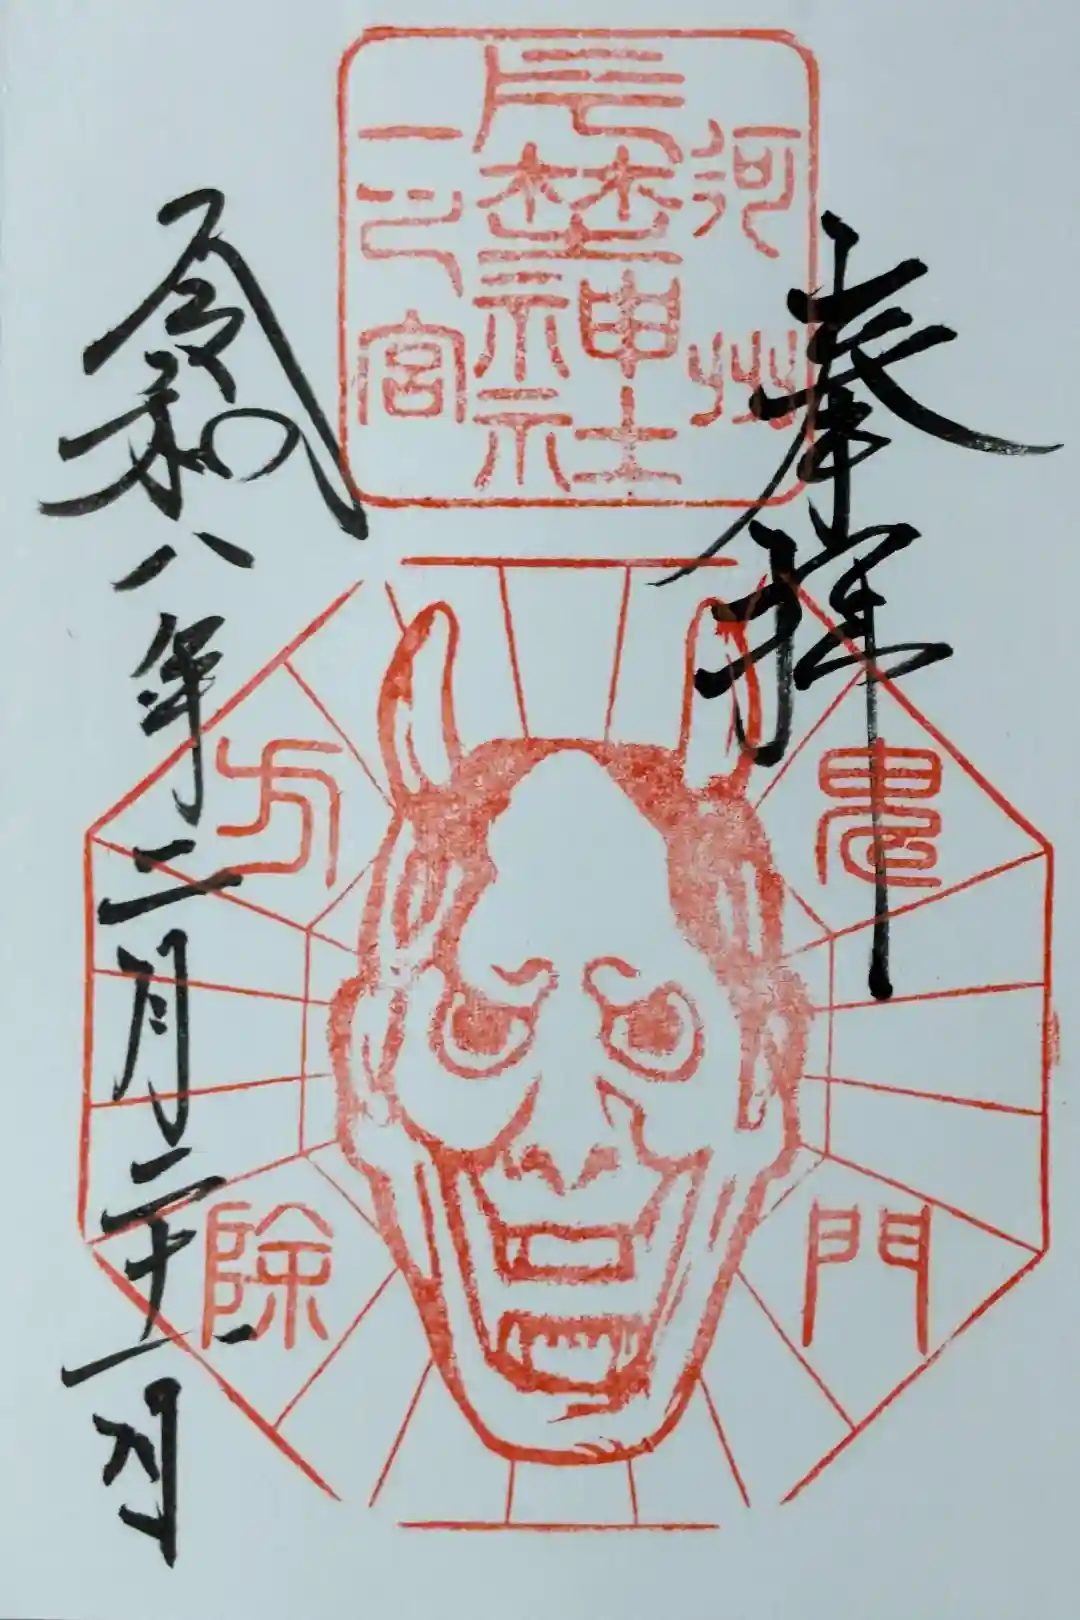 奉拝
河州
片埜神社
一之宮
鬼門
方除
令和八年二月二十二日